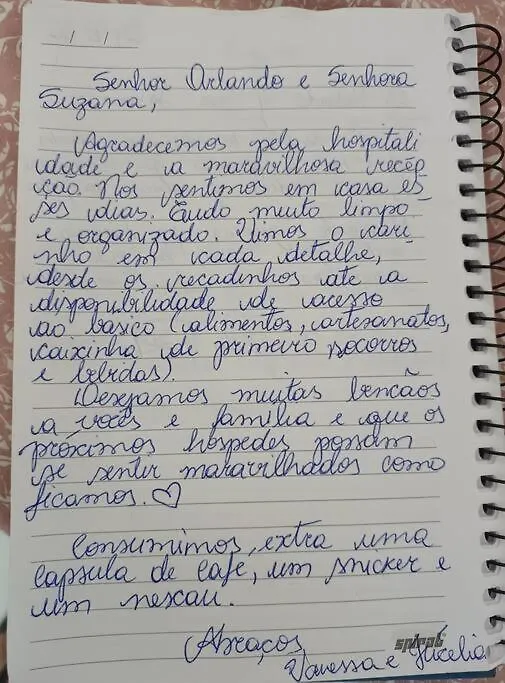 / /
Senhor Orlando e Senhora
Suzana,
Agradecemos pela hospitali
dade e a maravilhosa recep
ção. Nos sentimos em casa es
ses dias. Tudo muito limpo
e organizado. Vimos o cari
nho em cada detalhe,
desde os recadinhos até a
disponibilidade de acesso
ao básico (alimentos, artesanatos,
caixinha de primeiro socorros
e bebidas).
Desejamos muitas bençãos
a vocês e família e que os
próximos hospedes possam
se sentir maravilhados como
ficamos. ♡
Consumimos, extra uma
capsula de cafe, um snicker e
um nescau.
Abraços,
spiral
Vanessa e Jucelia